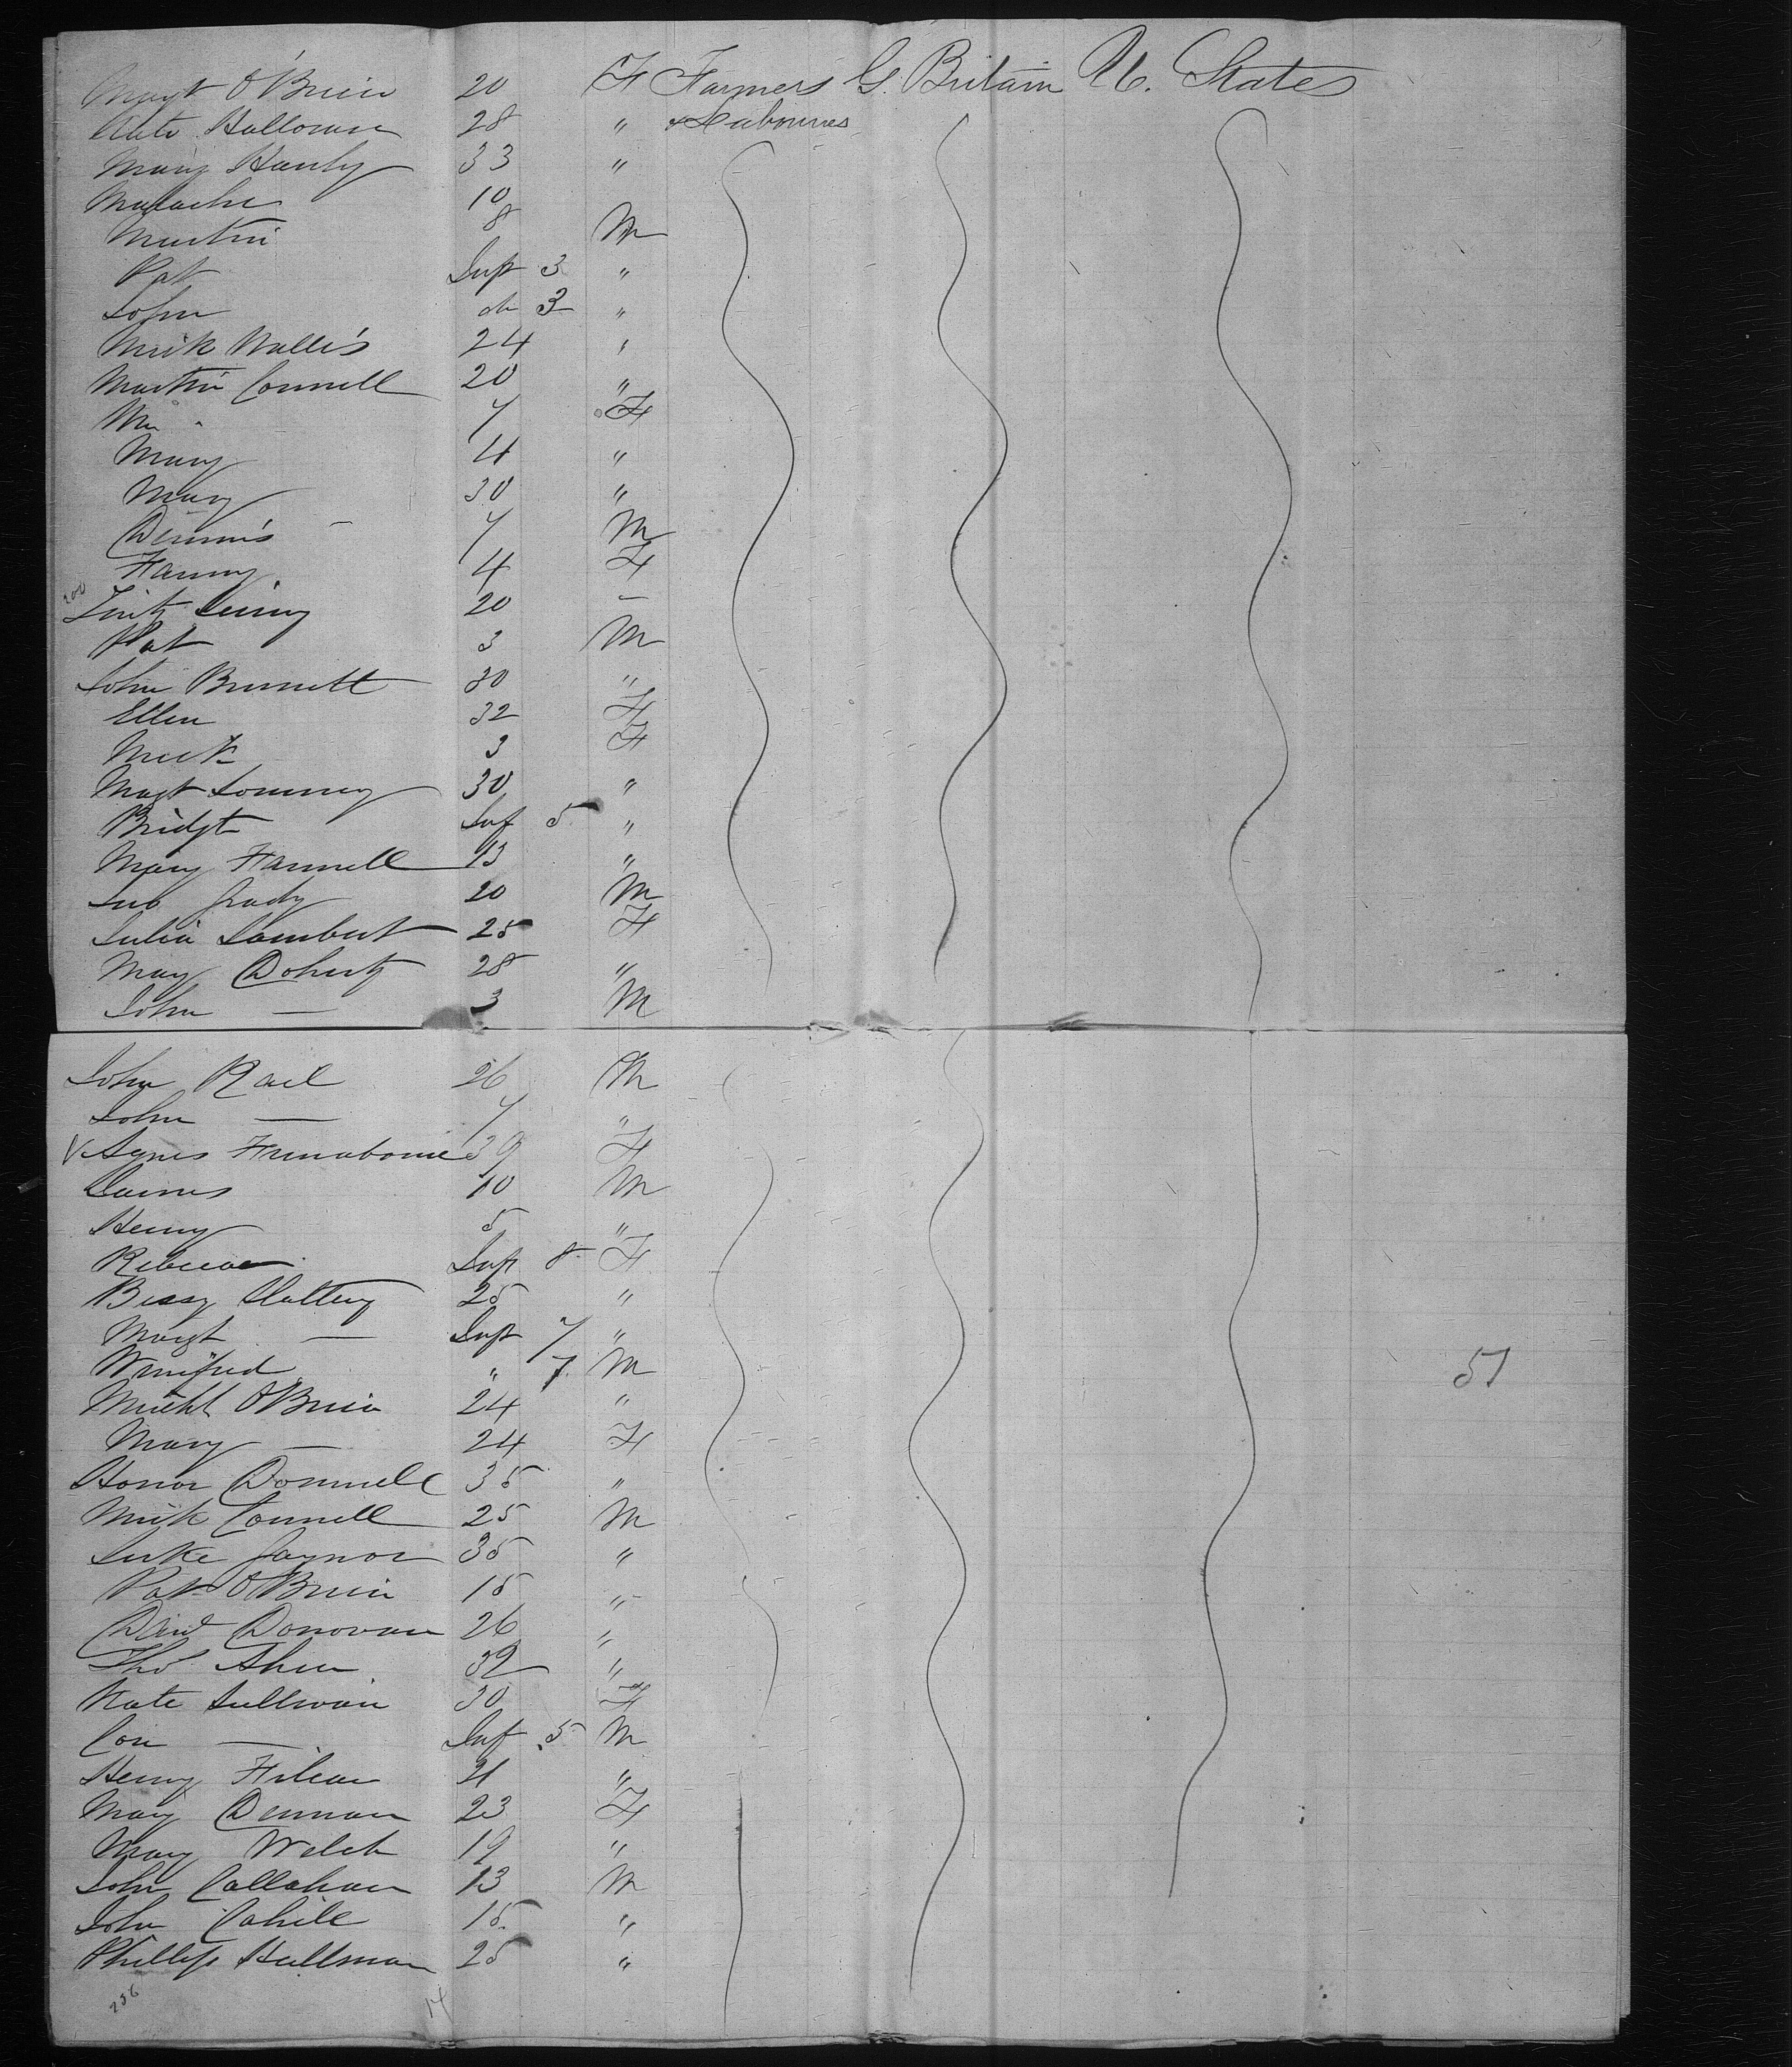 Margt O'Brien 20 F Farmers G. Britain U. States
Kate Halloran 28 " & Labourers
Mary Hanly 33 "
Malachi 10
Martin 8 M
Pat Inft 3 "
John do 3 "
Mick Wallis 24 "
Martin Connell 20 "
7 F
Mary 4 "
Mary 30 "
Dennis - 7 M
Fanny 4 F
200
20 -
Pat 3 M
John Bennett 30 "
Ellen 32 F
Mick 3 F
Magt 30 "
Bridgt Inf 5 "
Mary Fannell 13 "
Grady 20 M
Julia Lambert 25 F
Mary Doherty 28 "
John — 3 M
John Rael 26 M
John — 7 "
Agnes 39 F
James 10 M
Henry 5 "
Rebecca Inft 8 F
Bessy Slattery 25 "
Margt — Inft 7 "
Winifred " 7 M
Michl O'Brien 24 "
Mary — 24 F
Honor Donnell 35 "
Mick Connell 25 M
Luke Gaynor 35 "
Pat O'Brien 15 "
David Donovan 26 "
Thos Ahern 32 "
Kate Sullivan 30 F
Con — Inf 5 M
Henry 21 "
Mary 23 F
Mary Welch 19 "
John Callahan 13 M
John Cahill 15 "
Phillip Hullman 25 "
51
256
14